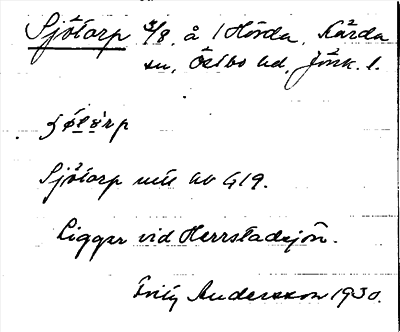 Sjötorp 3/8 å 1 Hörda, Kärda
sn, Östbo hd, Jönk. l.
Sjötorp
Ligger vid Herrstadsjön.
Fritz Andersson 1930.